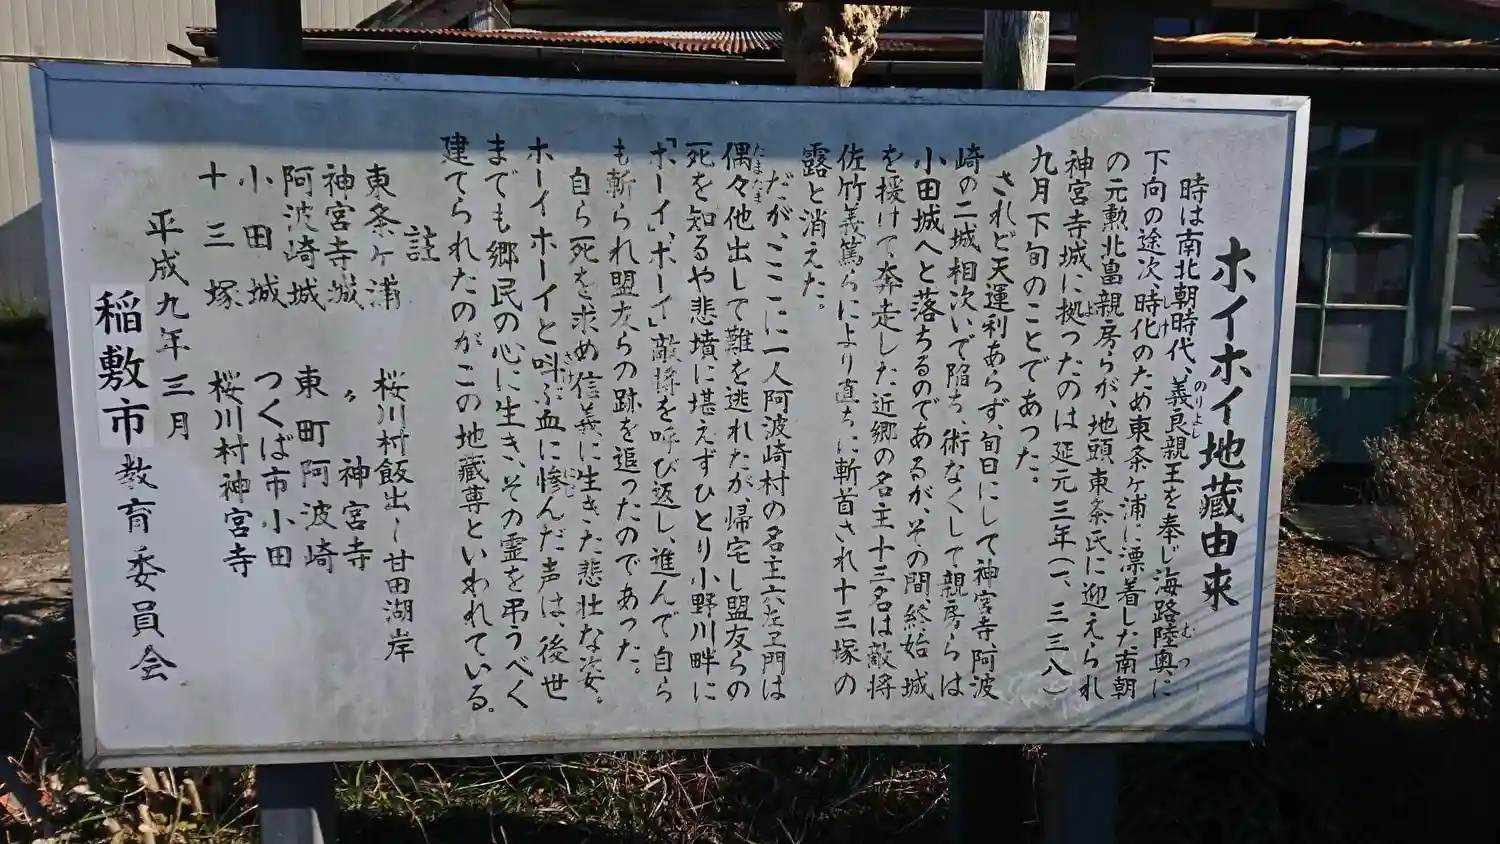 ホイホイ地蔵由来
時は南北朝時代、義良親王を奉じ海路陸奥に
のりよし
むつ
下向の途次、時化のため東条ヶ浦に漂着した南朝
しけ
の元勲北畠親房らが、地頭東条氏に迎えられ
神宮寺城に拠ったのは延元三年(一、三三八)
よ
九月下旬のことであった。
されど天運利あらず、旬日にして神宮寺、阿波
崎の二城相次いで陥ち、術なくして親房らは
小田城へと落ちるのであるが、その間、終始城
を援けて奔走した近郷の名主十三名は敵将
佐竹義篤らにより直ちに斬首され十三塚の
露と消えた。
だが、ここに一人阿波崎村の名主六左ヱ門は
偶々他出して難を逃れたが、帰宅し盟友らの
たまたま
死を知るや悲墳に堪えずひとり小野川畔に
「ホーイ」、ホーイ」敵将を呼び返し、進んで自ら
も斬られ盟友らの跡を追ったのであった。
自ら死を求め信義に生きた悲壮な姿。
ホーイホーイと叫ぶ血に惨んだ声は、後世
さけ
にじ
までも郷民の心に生き、その霊を弔うべく
建てられたのがこの地蔵尊といわれている。
註
東条ヶ浦 桜川村飯出~甘田湖岸
神宮寺城 〃 神宮寺
阿波崎城 東町阿波崎
小田城 つくば市小田
十三塚 桜川村神宮寺
平成九年三月
稲敷市教育委員会